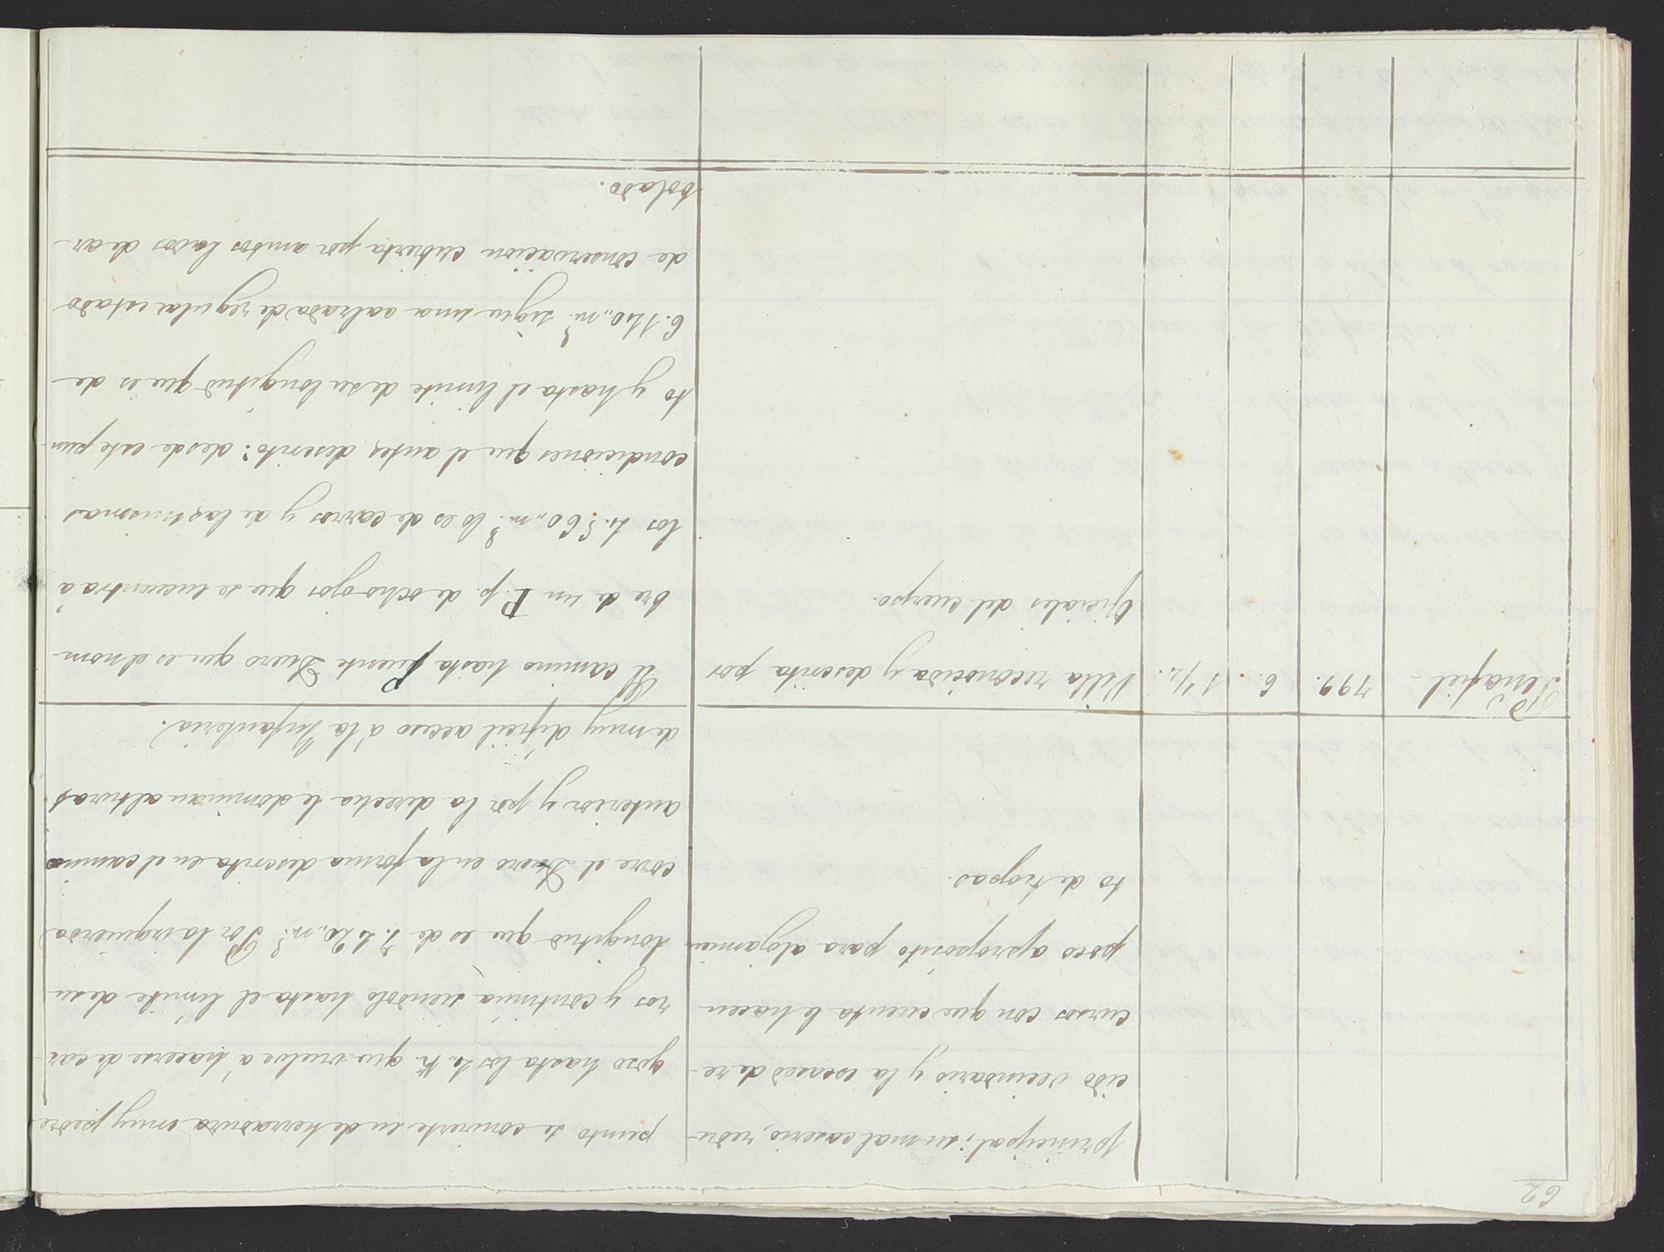 62
principal; su mal caserio, redu-
cido vecindario y la escased de re-
cursos con que cuenta le hacen
poco aproposito para alojamien
to de tropas.
Peñafiel 799. 6. 1 1/2. Villa reconocida y descrita por
Oficiales del cuerpo.
punto se convierte en de herradura muy pedre
goso hasta los 4. K. que vuelve á hacerse de car-
ros y continúa siendolo hasta el limite de su
longitud que es de 7.420,, m.s Por la izquierda
corre el Duero en la forma descrita en el camino
anterior y por la derecha le dominan alturas
de muy dificil acceso á la Infanteria.
El camino hasta Puente Duero que es el nom-
bre de un P. p. de ocho ojos que se encuentra á
los 4.560,, m.s lo es de carros y de las mismas
condiciones que el antes descrito: desde este pun-
to y hasta el limite de su longitud que es de
6.140,, m.s sigue una calzada de regular estado
de conservacion cubierta por ambos lados de ar-
bolado.